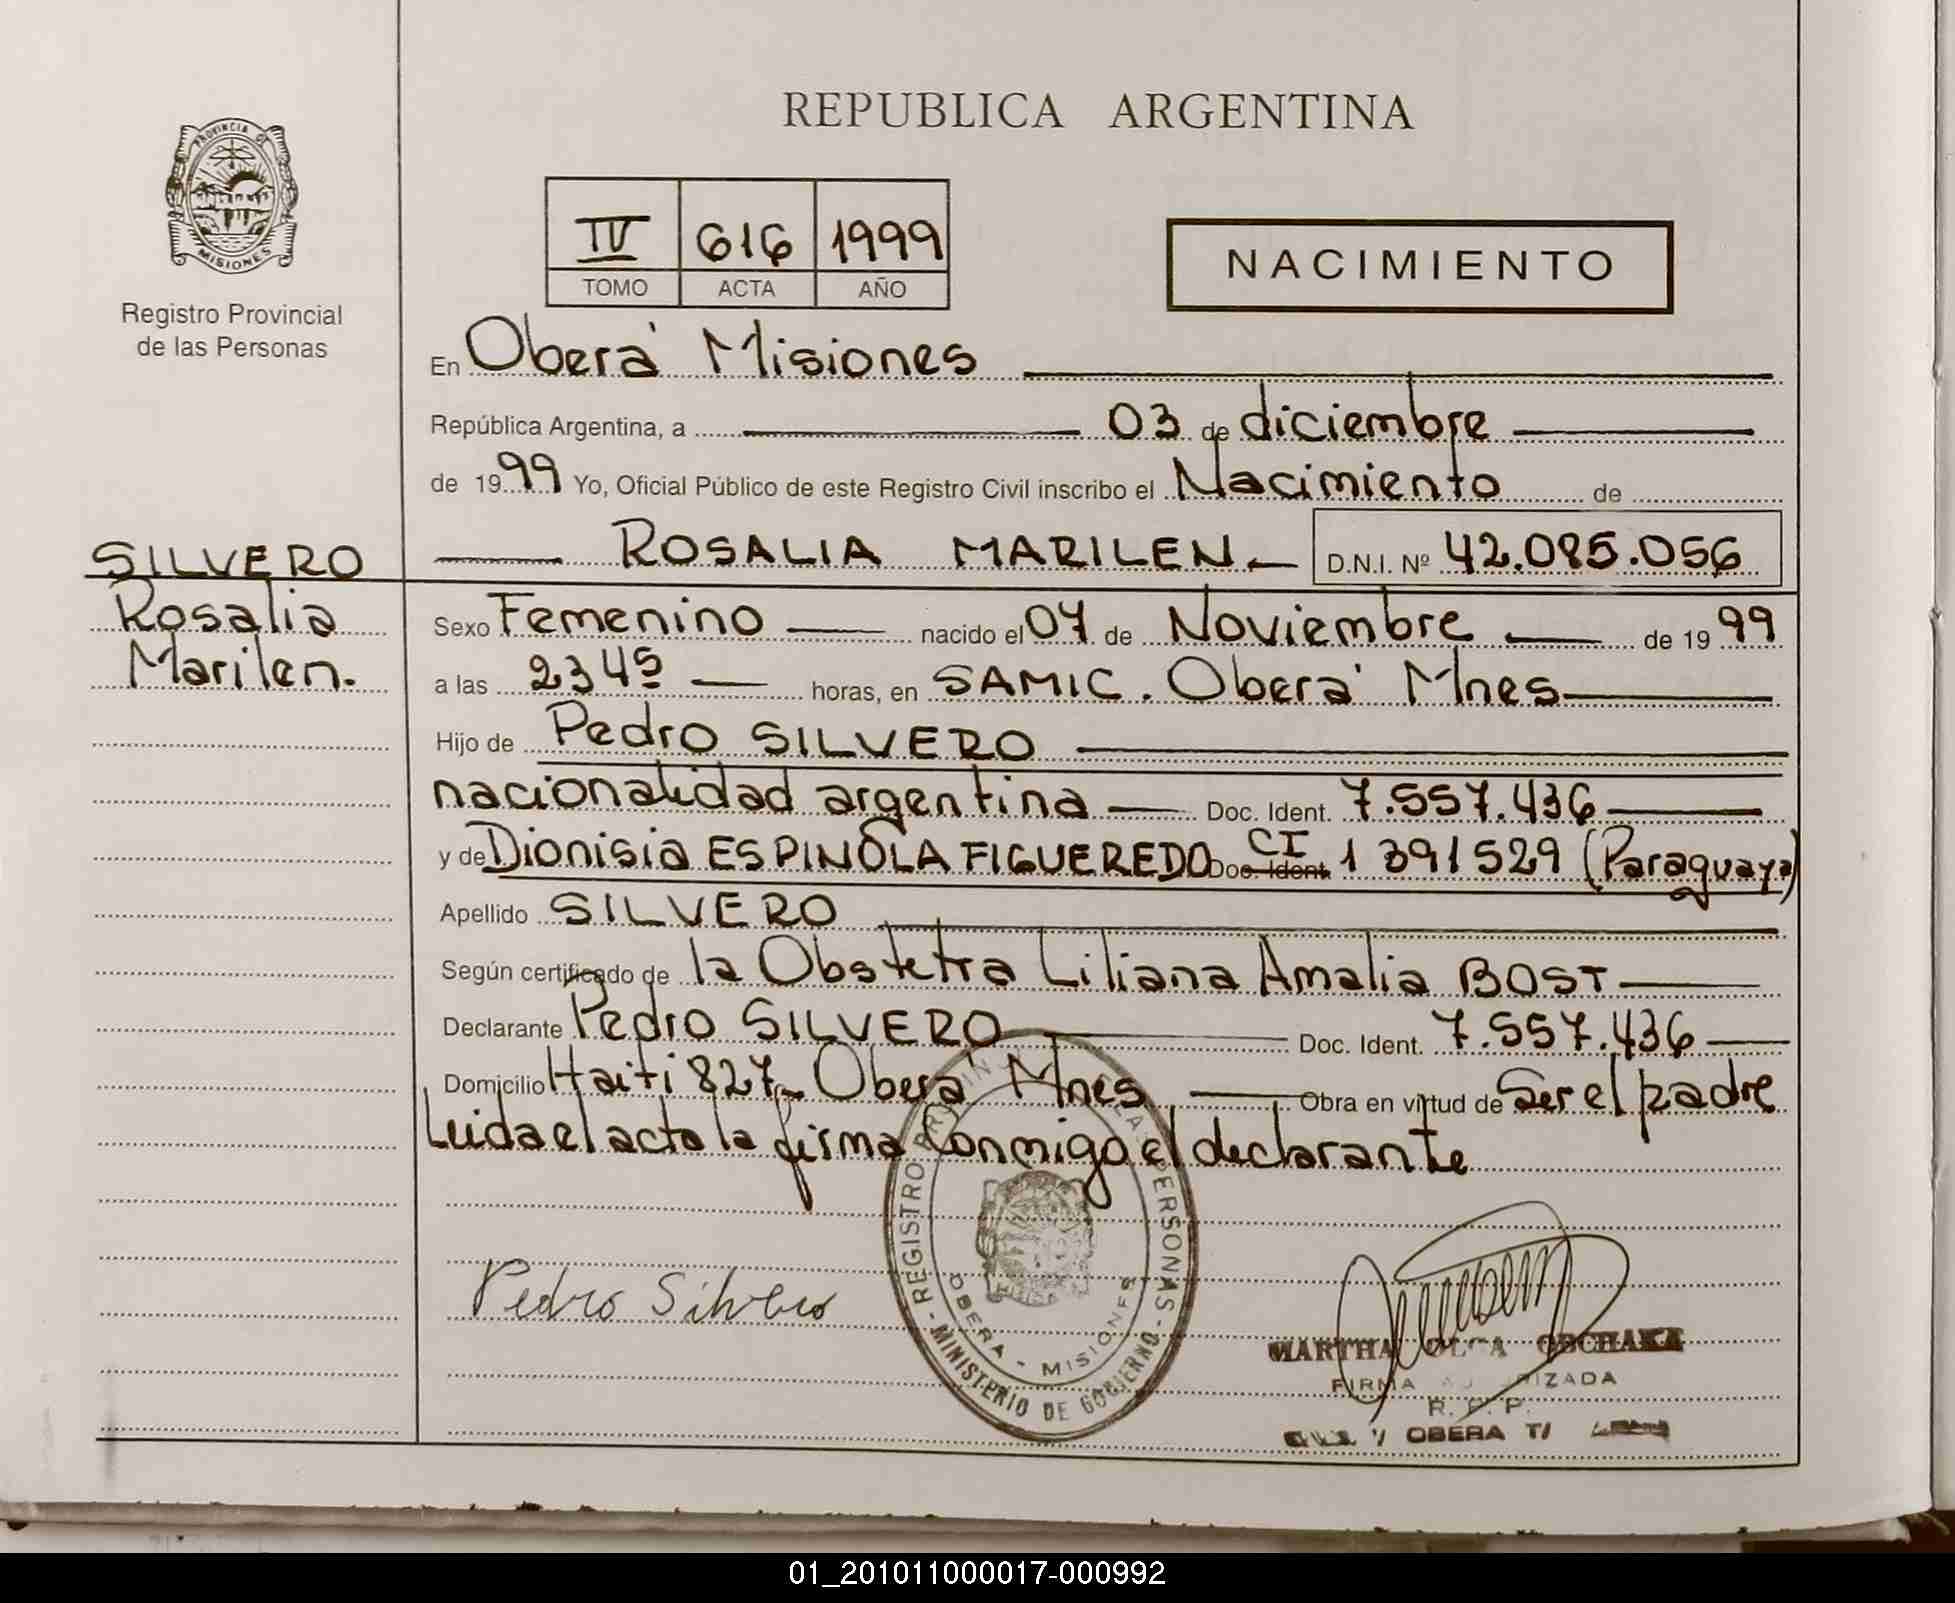 REPUBLICA ARGENTINA
PROVINCIA DE
MISIONES
Registro Provincial
de las Personas
IV 616 1999
TOMO ACTA AÑO
NACIMIENTO
En Oberá Misiones
República Argentina, a 03 de diciembre
de 1999 Yo, Oficial Público de este Registro Civil inscribo el Nacimiento de
ROSALIA MARILEN D.N.I. Nº 42.085.056
SILVERO
Rosalia
Marilen.
Sexo Femenino nacido el 07 de Noviembre de 1999
a las 2345 horas, en SAMIC. Oberá Mnes
Hijo de Pedro SILVERO
nacionalidad argentina Doc. Ident. 7.557.436
y de Dionisia ESPINOLA FIGUEREDO Doc. Ident. CI 1 391529 (Paraguaya)
Apellido SILVERO
Según certificado de la Obstetra Liliana Amalia BOST
Declarante Pedro SILVERO Doc. Ident. 7.557.436
Domicilio Haiti 827 Oberá Mnes Obra en virtud de Ser el padre
Leida el acta la firma Conmigo el declarante
Pedro Silvero
REGISTRO PROVINCIAL DE LAS PERSONAS
OBERA - MISIONES
MINISTERIO DE GOBIERNO
MARTHA OLGA
FIRMA AUTORIZADA
R. P. P.
OBERA
01_201011000017-000992